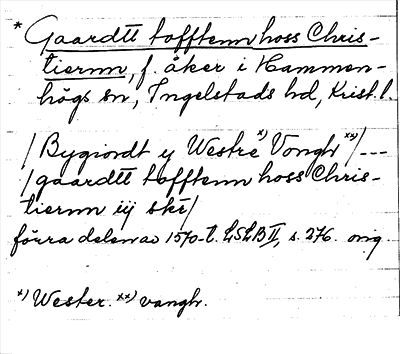 * Gaardtt tofftenn hoss Chris-
tiernn, f. åker i Hammen-
högs sn, Ingelstads hd, Krist. l.
/ Bygiordt y Westre x) Vongh xx) / ---
/ gaardtt tofftenn hoss Chris-
tiernn iij skr /
förra delen av 1570-t. LSLB II, s. 276. orig.
x) Wester. xx) vangh.